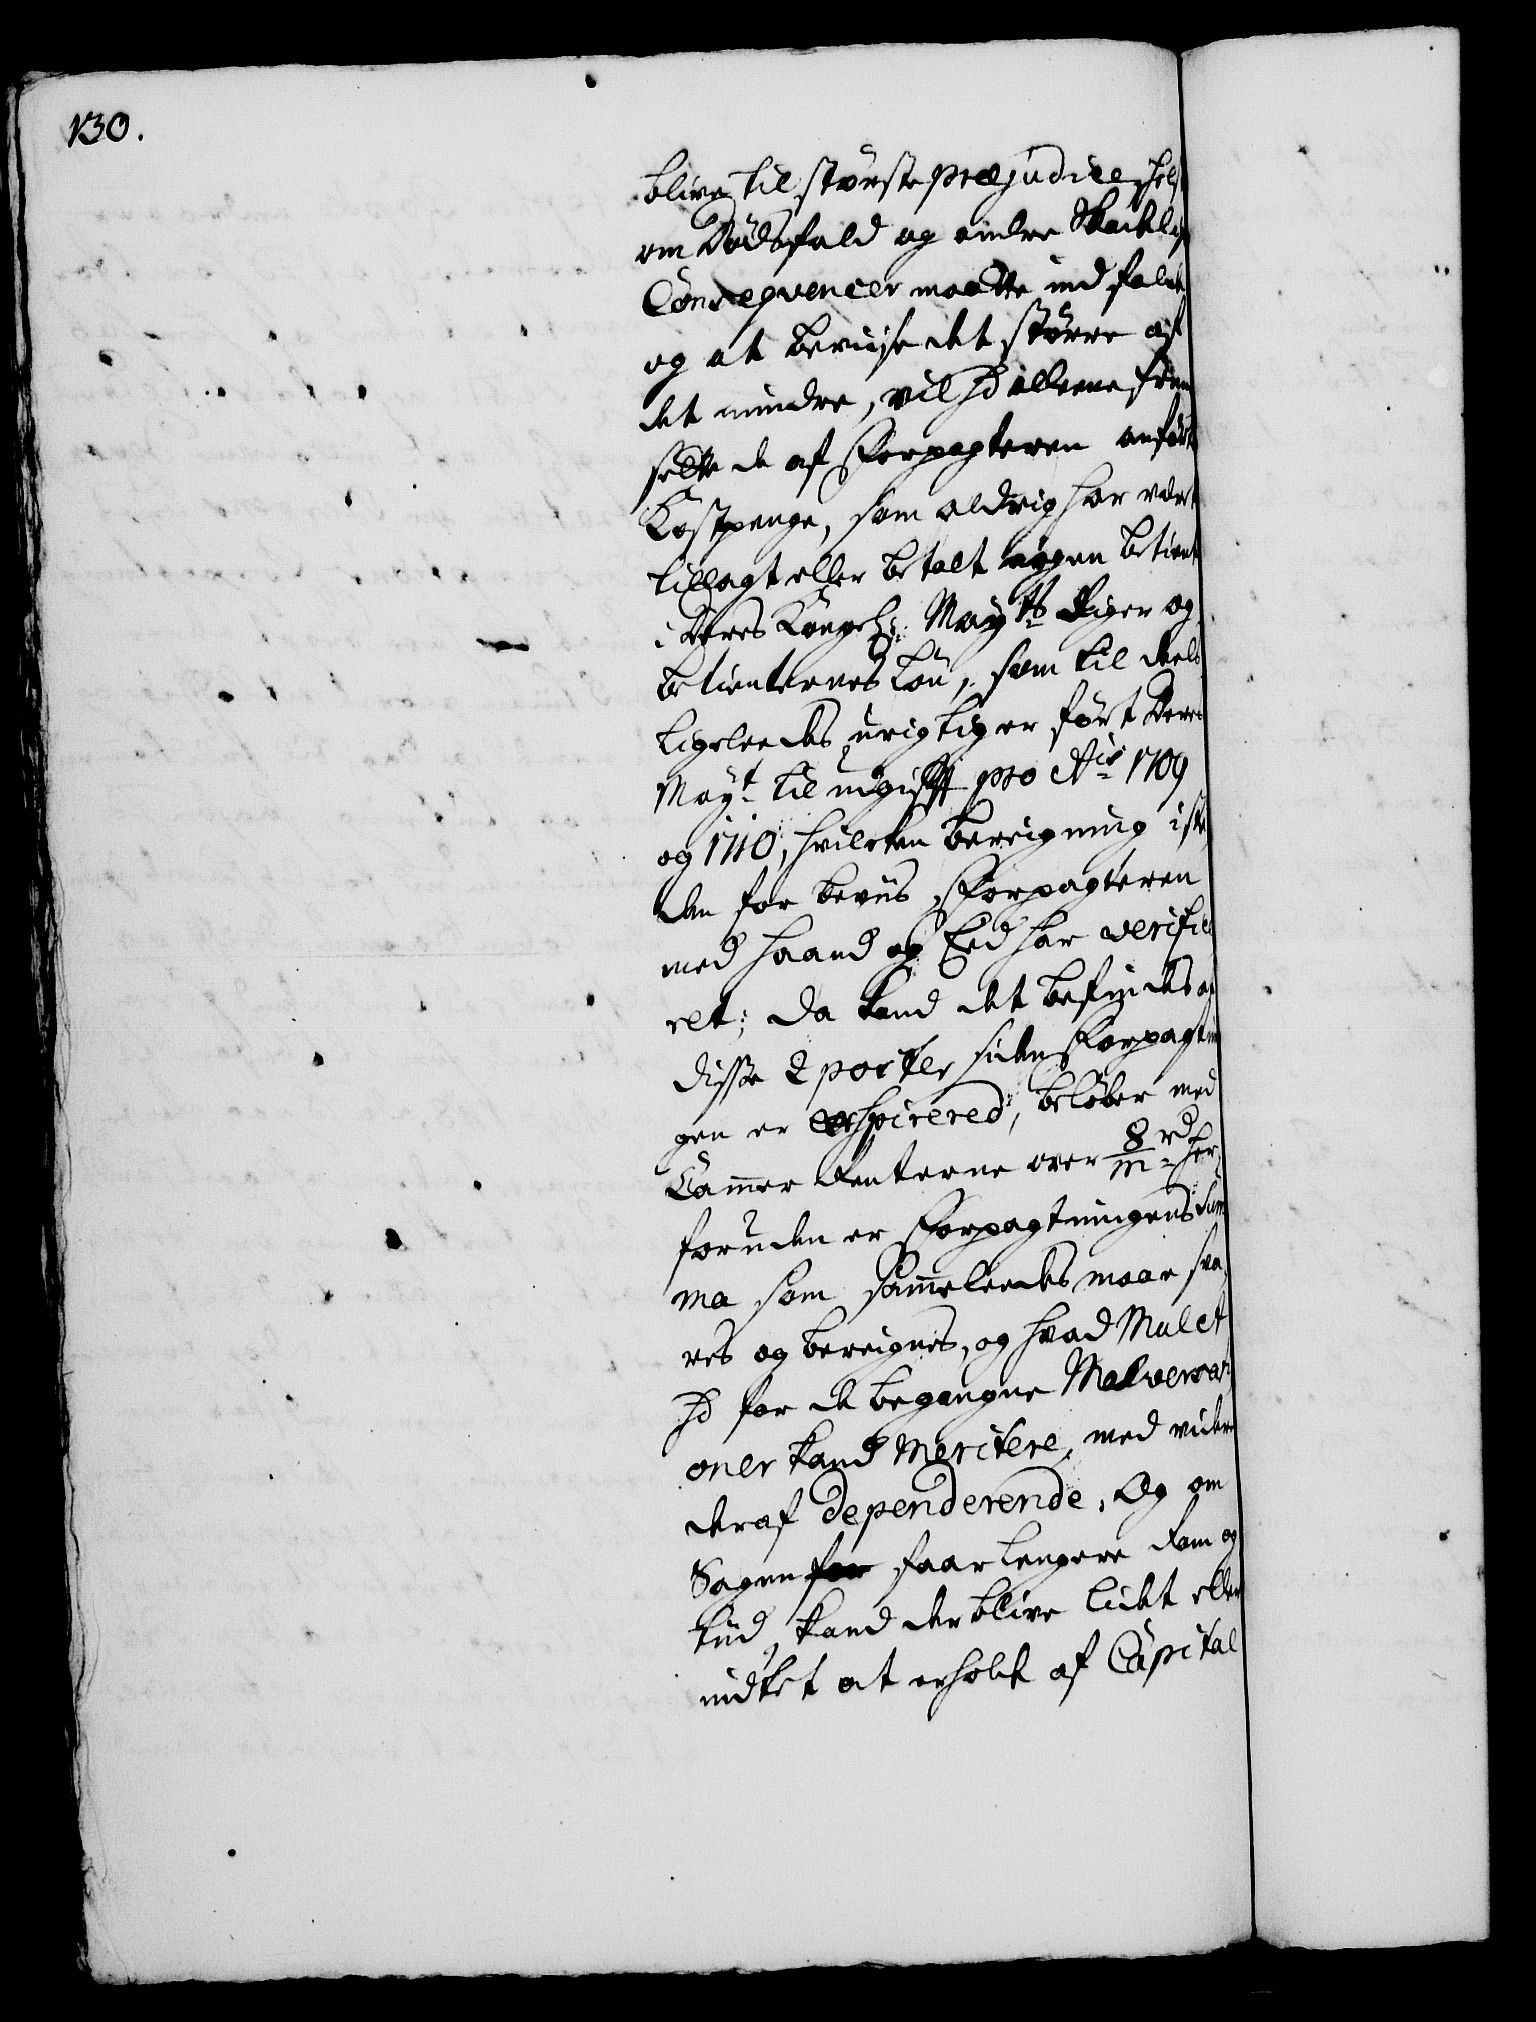 130.
blive til største præjudice, hels
om Dødsfald og andre Skadelig
Conseqvencer maatte indfalde
og at beviise det større af
det mindre, vil Jd alleene frem
sette de af Forpagteren anført
Kostpenge, som aldrig har vært
tillagt eller betalt nogen betient
i Deres Kongel: Mayts Riger og
betienternes Løn, som til deels
ligeleedes urigtig er ført Deres
Mayt til udgifft pro Ais 1709
og 1710, hvilcken bereigning i ste
den for beviis, Forpagteren
med haand og Eed har verifice
ret; da kand det befindes at
disse 2 poster, siden Forpagtnin
gen er exspirered, beløber med
Cammer Renterne over 8/m rd her
foruden er Forpagtningens Sum
ma som sammeleedes maae sva
res og bereignes, og hvad Mulct
Jd for de begangne Malversati
oner kand meritere, med videre
deraf dependerende. Og om
Sagen for faar lengere Rom og
tiid, kand der blive lidet eller
indtet at erholde af Capital